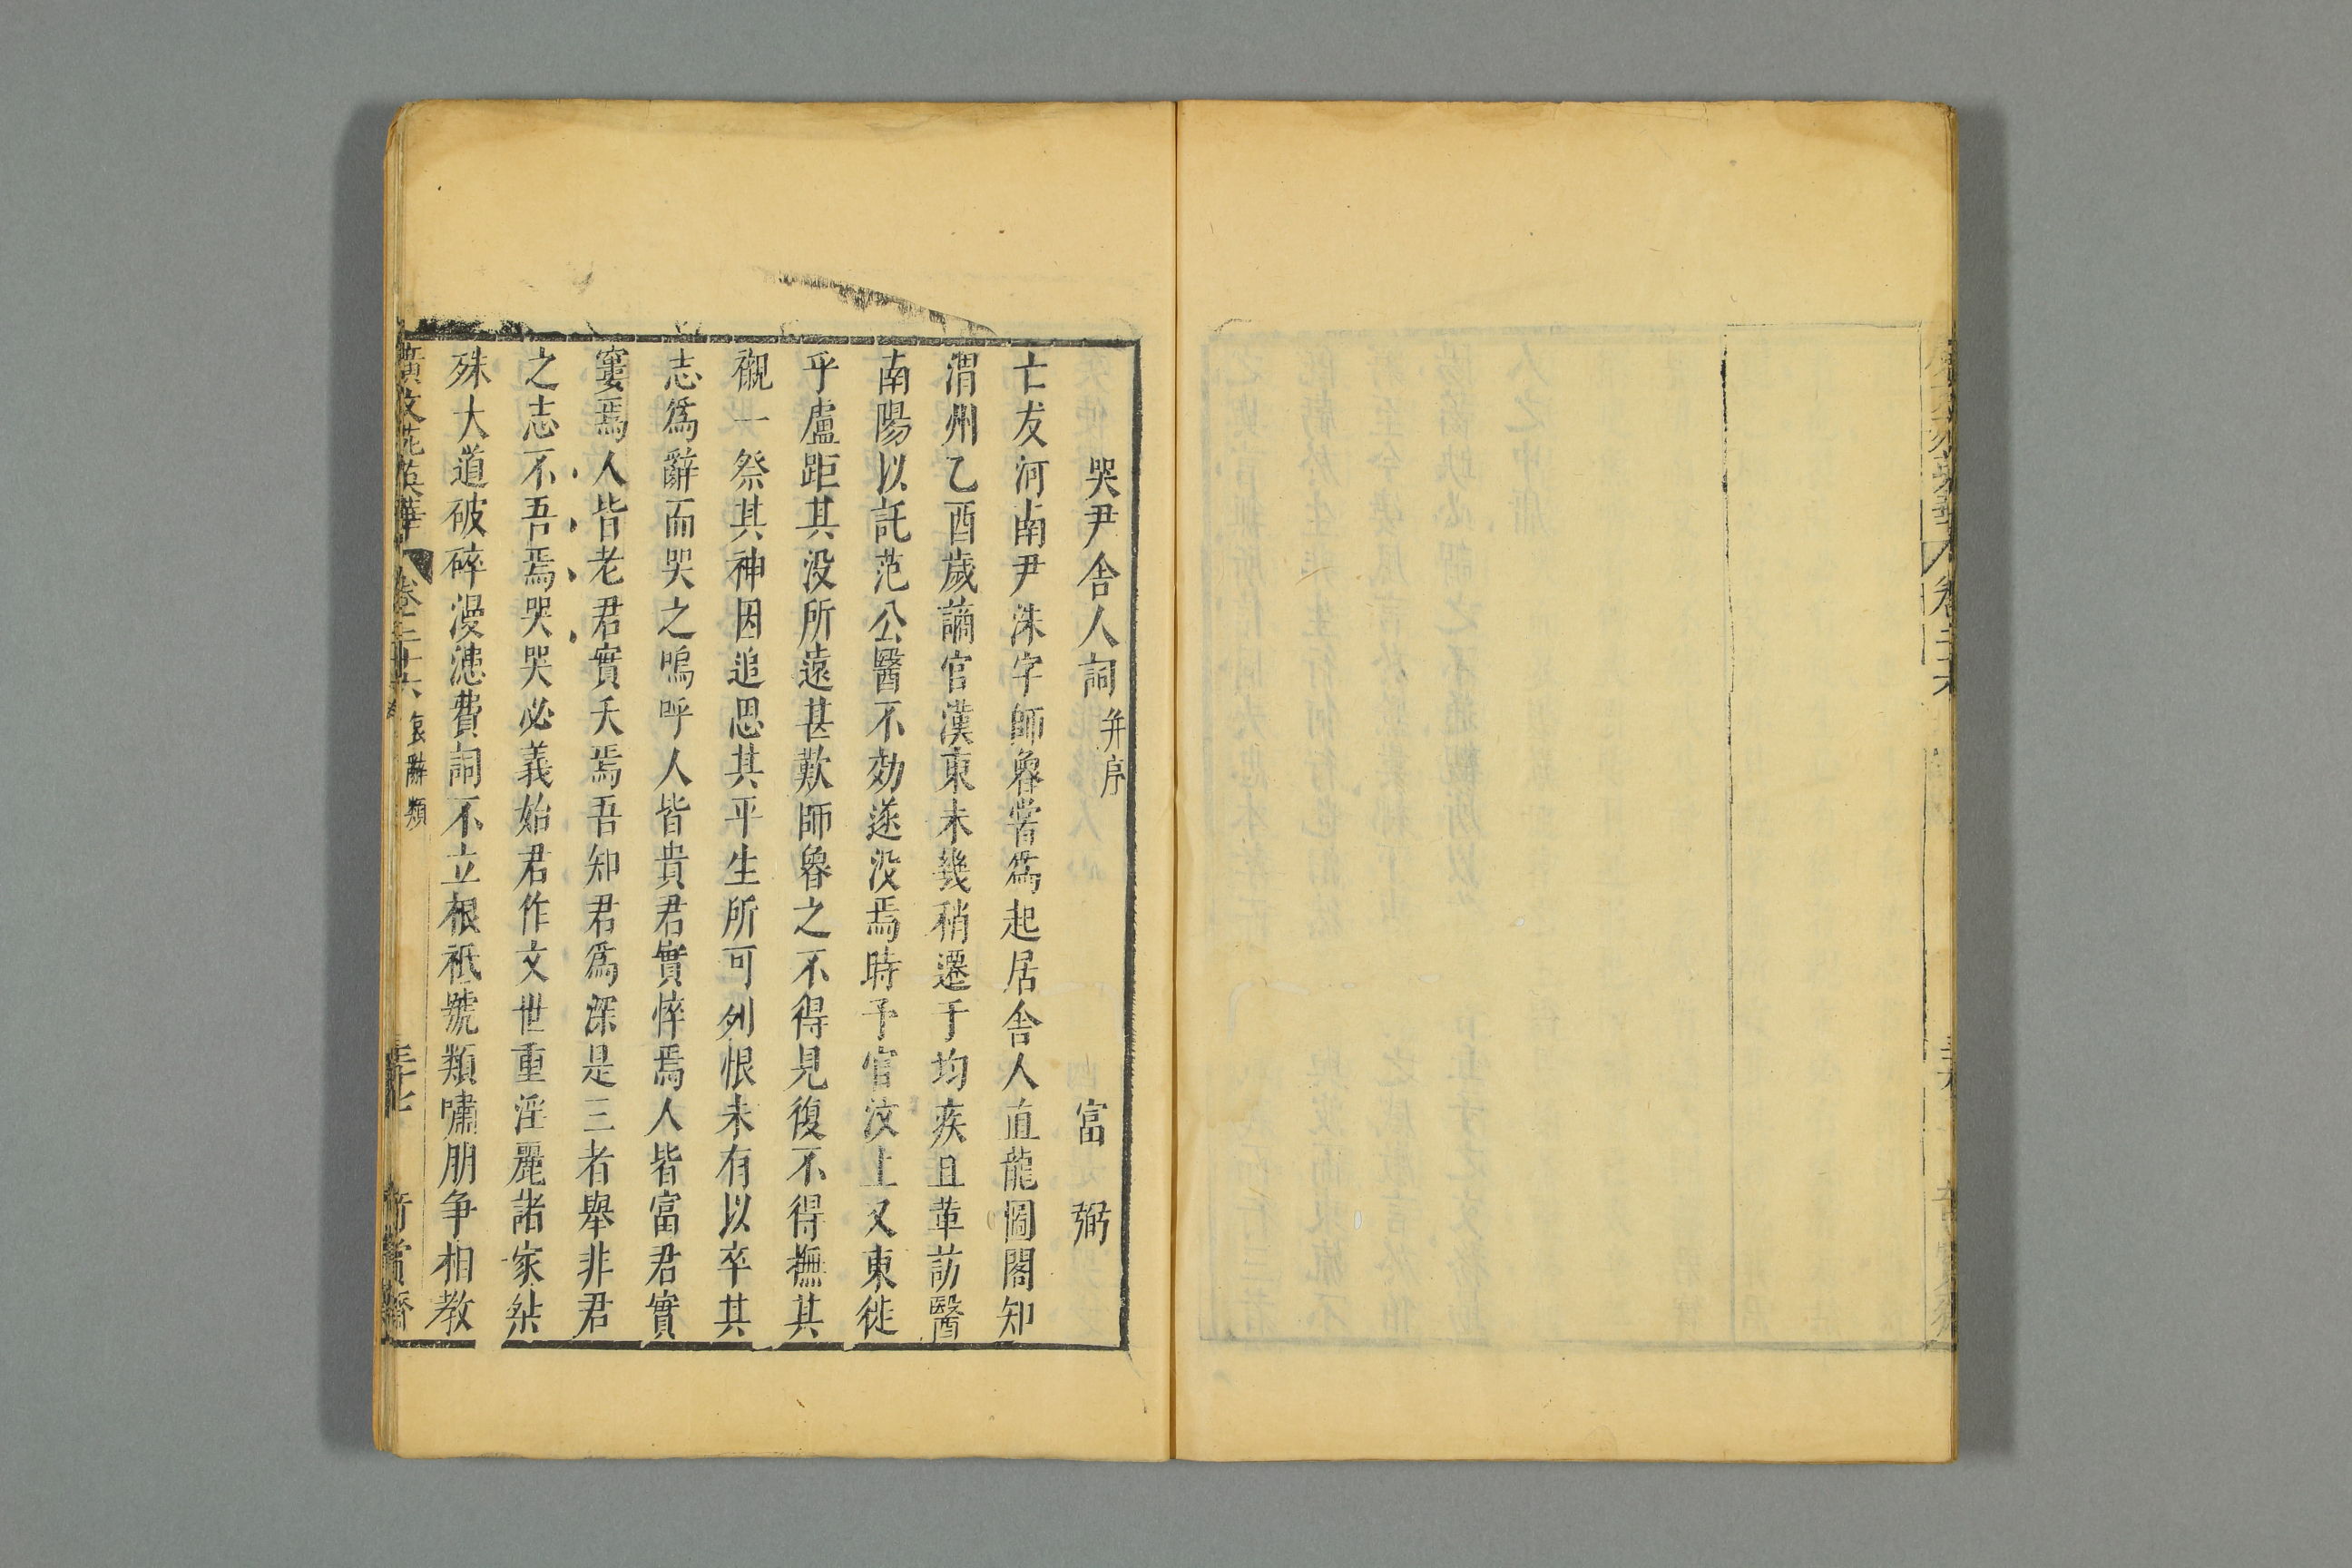 哭尹舍人詞 并序 富弼
亡友河南尹洙字師魯嘗爲起居舍人直龍圖閣知
渭州乙酉歲謫官漢東未幾稍遷于均疾且革訪醫
南陽以託范公醫不効遂没焉時予官汶上又東徙
乎盧距其没所遠甚歎師魯之不得見復不得撫其
襯一祭其神因追思其平生所可列恨未有以卒其
志爲辭而哭之嗚呼人皆貴君實悴焉人皆富君實
窶焉人皆老君實夭焉吾知君爲深是三者舉非君
之志不吾焉哭哭必義始君作文世重淫麗諸家舛
殊大道破碎漫漶費詞不立根柢號類嘯朋争相教
廣文苑英華 卷二十六 哀辭類 三十七 行賞齋